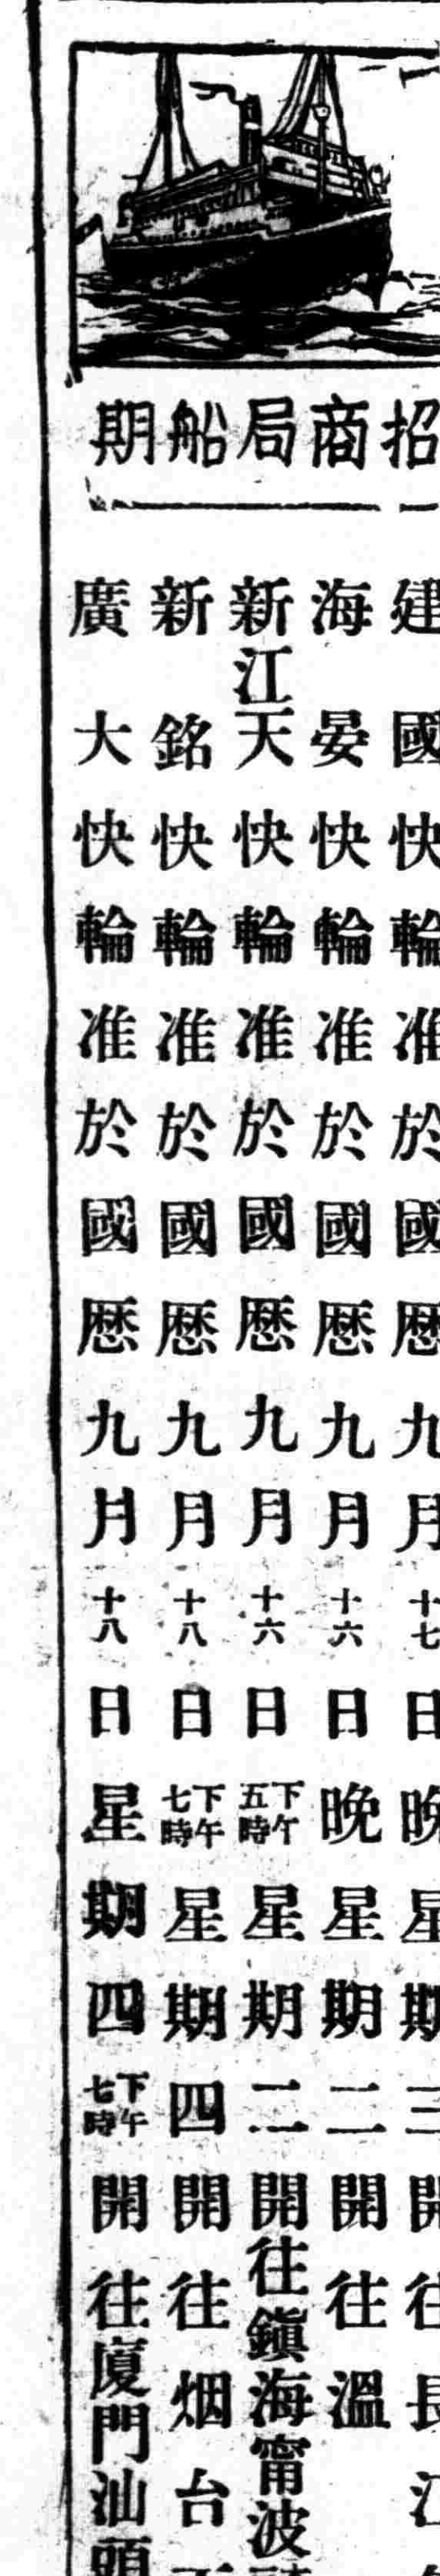 招商局船期
建國快輪准於國曆九月十七日晚星期三開往長江
海晏快輪准於國曆九月十六日晚星期二開往溫
新江天快輪准於國曆九月十六日下午五時星期二開往鎮海甯波
新銘快輪准於國曆九月十八日下午七時星期四開往烟台
廣大快輪准於國曆九月十八日星期四下午七時開往廈門汕頭